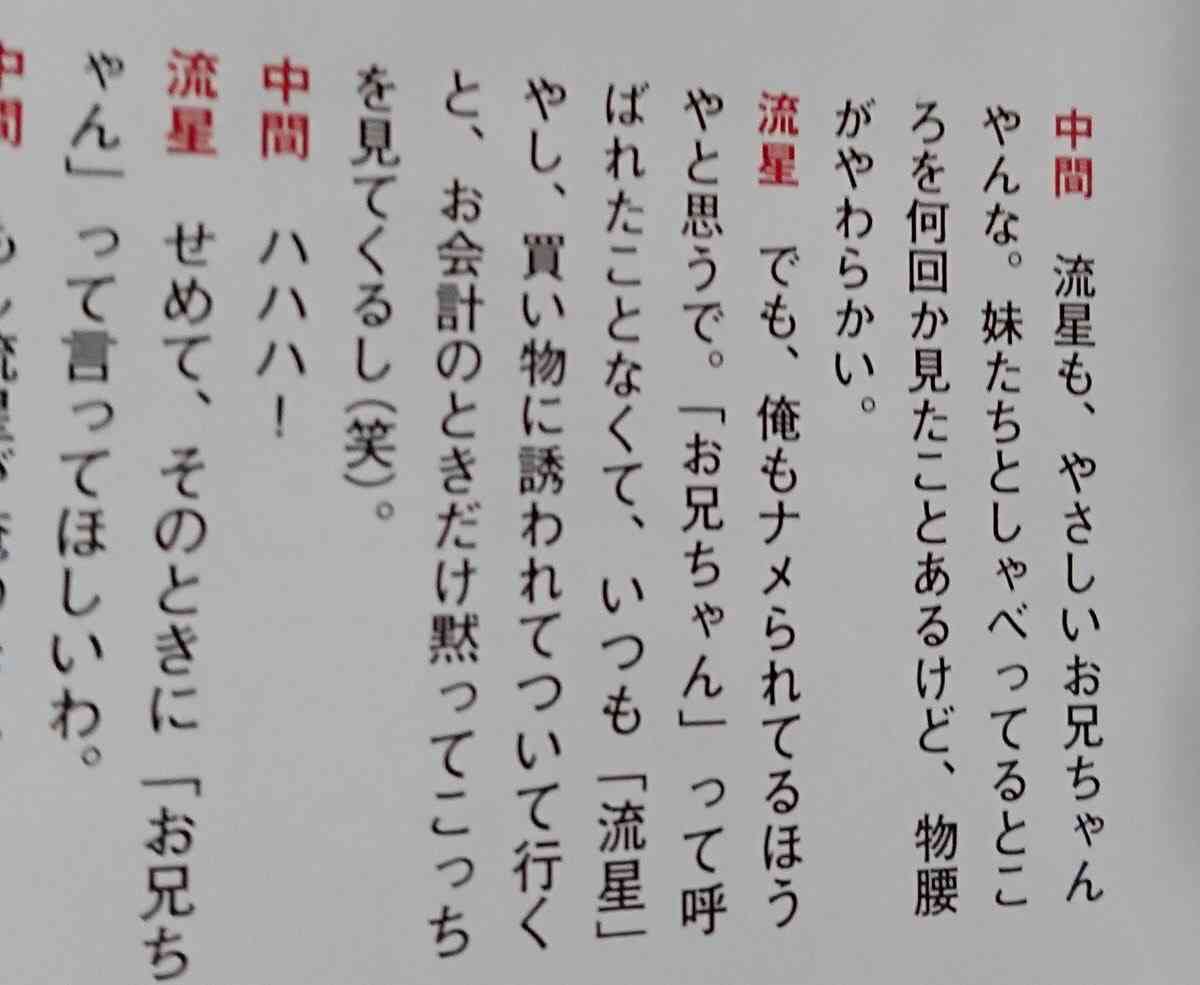 中間　流星も、やさしいお兄ちゃん
やんな。妹たちとしゃべってるとこ
ろを何回か見たことあるけど、物腰
がやわらかい。
流星　でも、俺もナメられてるほう
やと思うで。「お兄ちゃん」って呼
ばれたことなくて、いつも「流星」
やし、買い物に誘われてついて行く
と、お会計のときだけ黙ってこっち
を見てくるし（笑）。
中間　ハハハ！
流星　せめて、そのときに「お兄ち
ゃん」って言ってほしいわ。
中間